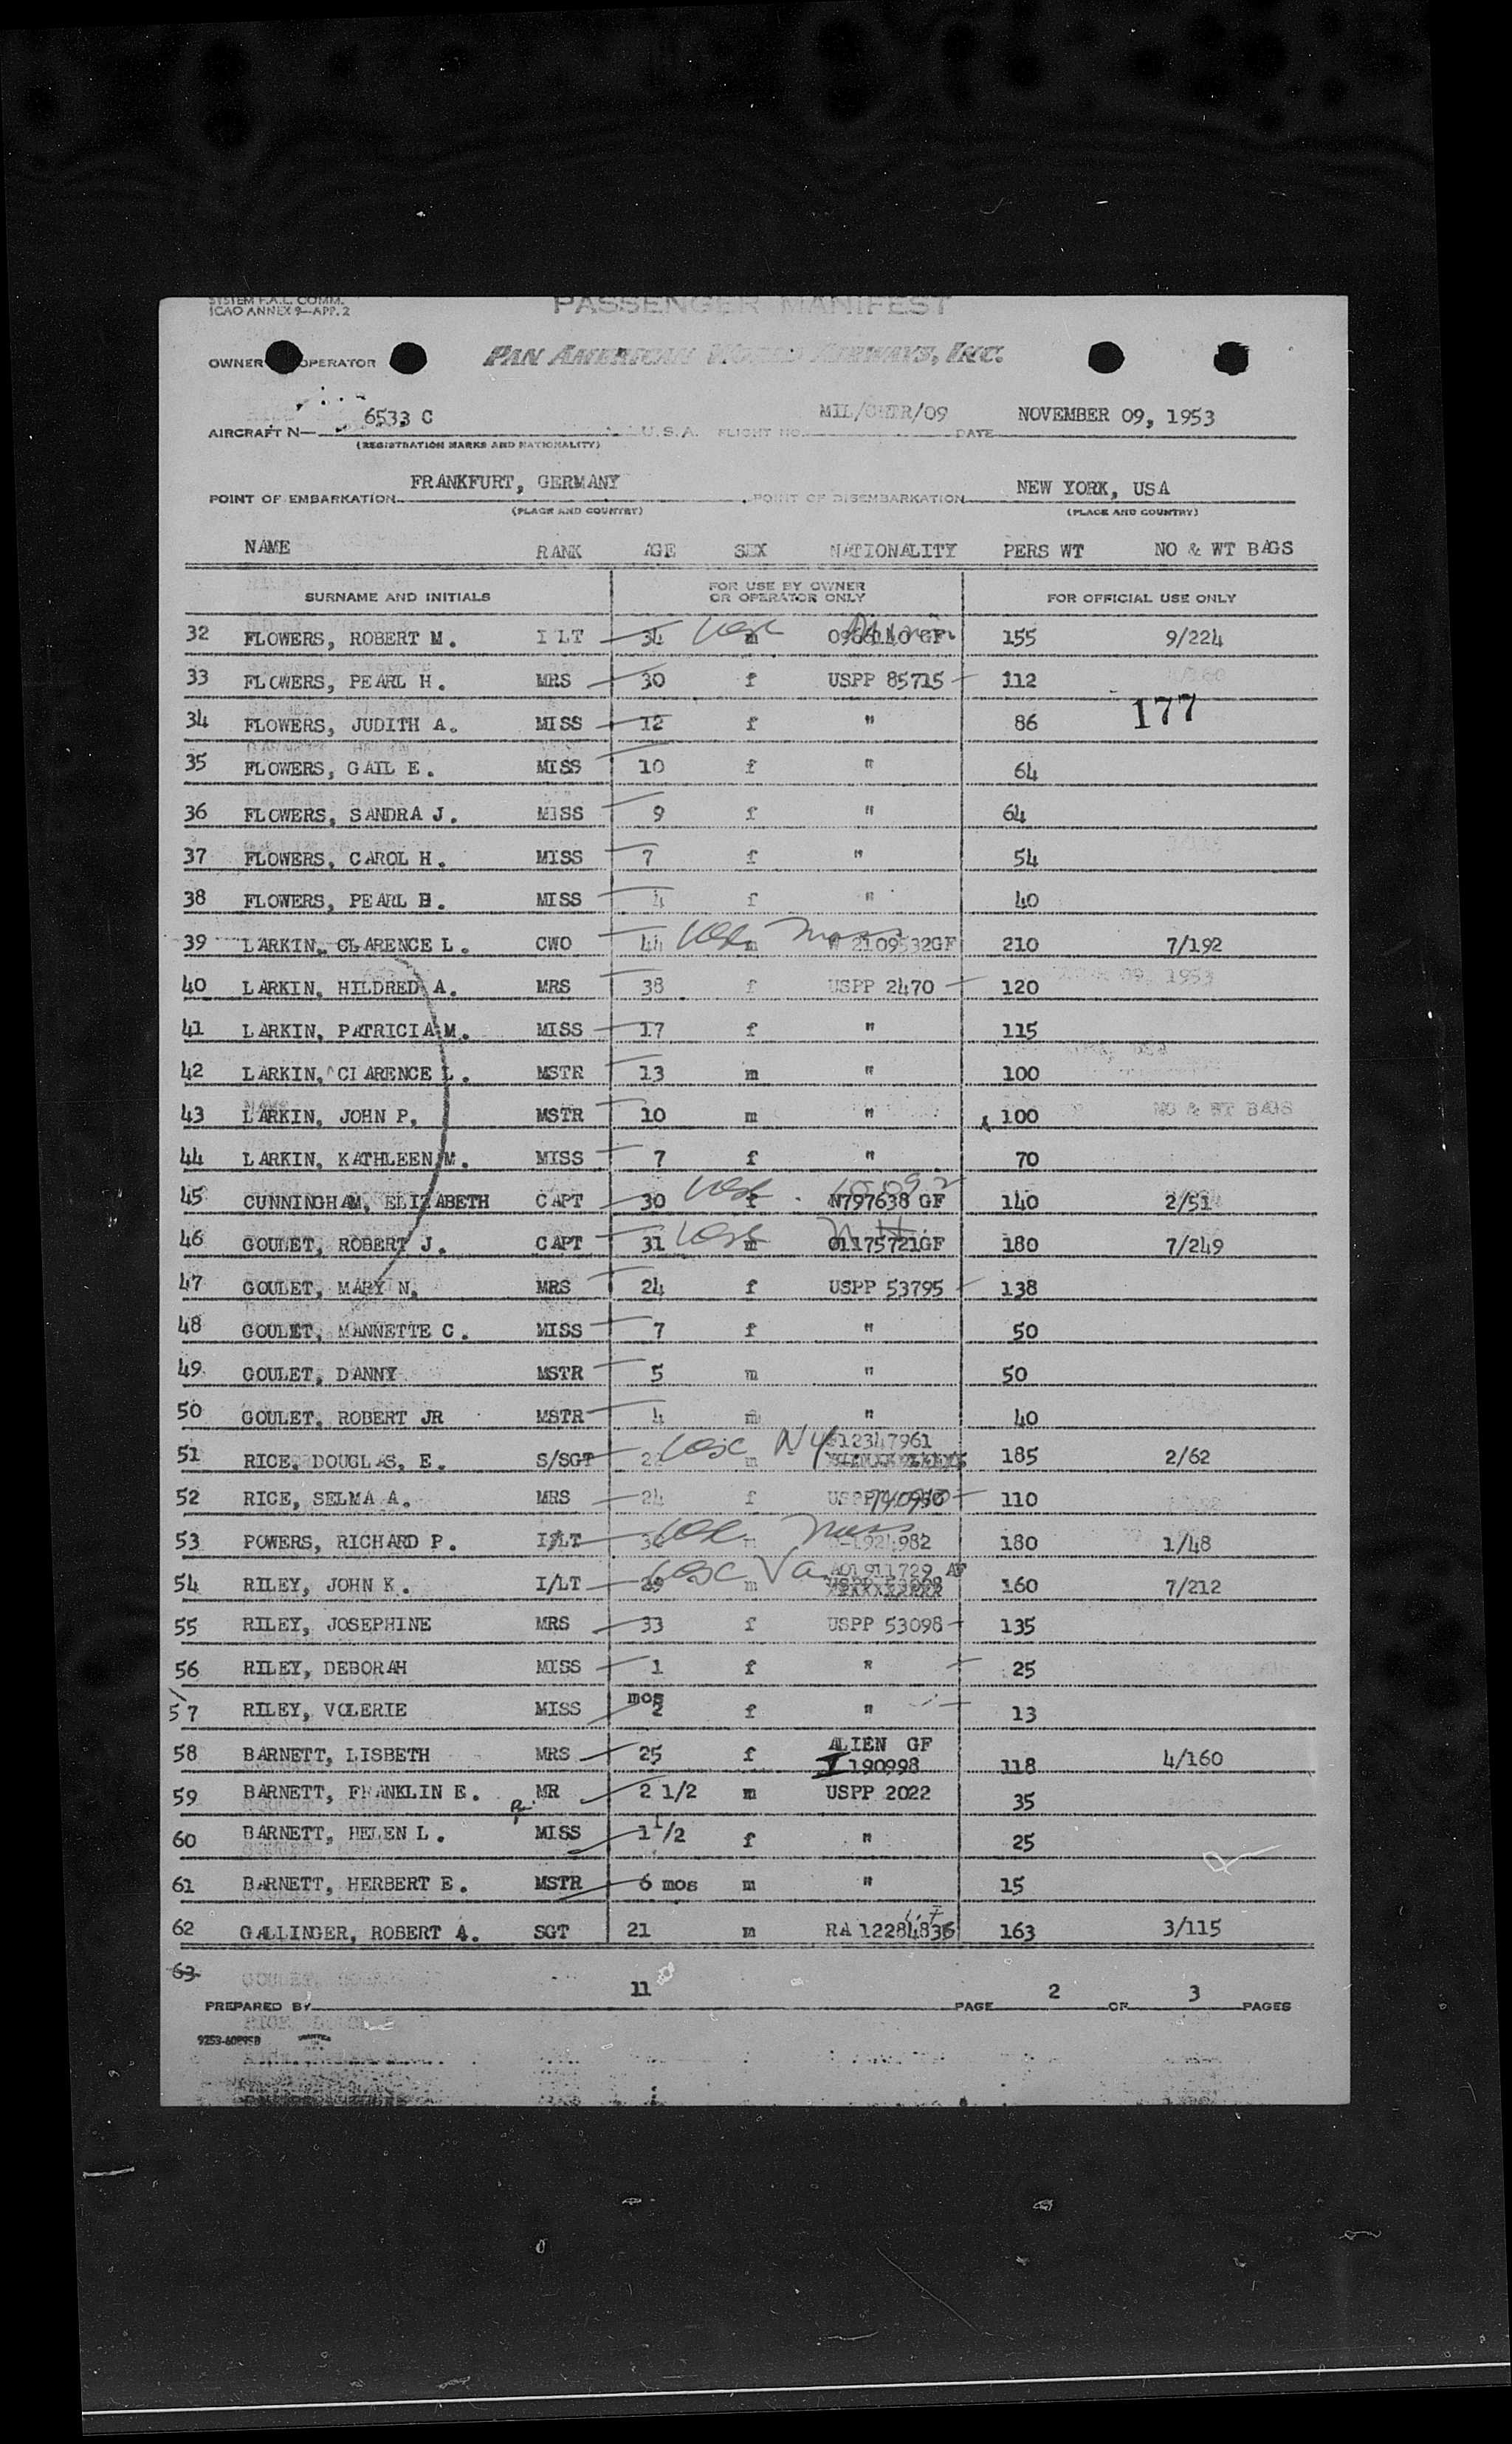 SYSTEM F.A.L. COMM.
ICAO ANNEX 9—APP. 2
PASSENGER MANIFEST
OWNER OPERATOR PAN AMERICAN WORLD AIRWAYS, INC.
AIRCRAFT N— 6533 C U.S.A. FLIGHT NO. MIL/CHTR/09 DATE NOVEMBER 09, 1953
(REGISTRATION MARKS AND NATIONALITY)
POINT OF EMBARKATION FRANKFURT, GERMANY POINT OF DISEMBARKATION NEW YORK, USA
(PLACE AND COUNTRY) (PLACE AND COUNTRY)
NAME RANK AGE SEX NATIONALITY PERS WT NO & WT BAGS
SURNAME AND INITIALS FOR USE BY OWNER OR OPERATOR ONLY FOR OFFICIAL USE ONLY
32 FLOWERS, ROBERT M. I LT 34 m GF 155 9/224
33 FLOWERS, PEARL H. MRS 30 f USPP 85715 112
34 FLOWERS, JUDITH A. MISS 12 f " 86 177
35 FLOWERS, GAIL E. MISS 10 f " 64
36 FLOWERS, SANDRA J. MISS 9 f " 64
37 FLOWERS, CAROL H. MISS 7 f " 54
38 FLOWERS, PEARL H. MISS 4 f " 40
39 LARKIN, CLARENCE L. CWO 44 m Mass W 2109532GF 210 7/192
40 LARKIN, HILDRED A. MRS 38 f USPP 2470 120
41 LARKIN, PATRICIA M. MISS 17 f " 115
42 LARKIN, CLARENCE L. MSTR 13 m " 100
43 LARKIN, JOHN P, MSTR 10 m " 100
44 LARKIN, KATHLEEN M. MISS 7 f " 70
45 CUNNINGHAM, ELIZABETH CAPT 30 f N797638 GF 140 2/51
46 GOULET, ROBERT J. CAPT 31 m N.H. 01175721GF 180 7/249
47 GOULET, MARY N, MRS 24 f USPP 53795 138
48 GOULET, MANNETTE C. MISS 7 f " 50
49 GOULET, DANNY MSTR 5 m " 50
50 GOULET, ROBERT JR MSTR 4 m " 40
51 RICE, DOUGLAS, E. S/SGT m NY 12347961 185 2/62
52 RICE, SELMA A. MRS 24 f USPP 110
53 POWERS, RICHARD P. I/LT m 180 1/48
54 RILEY, JOHN K. I/LT 29 m Va AO1911729 AF 160 7/212
55 RILEY, JOSEPHINE MRS 33 f USPP 53098 135
56 RILEY, DEBORAH MISS 1 f " 25
57 RILEY, VOLERIE MISS 2 mos f " 13
58 BARNETT, LISBETH MRS 25 f ALIEN GF I 190998 118 4/160
59 BARNETT, FRANKLIN E. MR 2 1/2 m USPP 2022 35
60 BARNETT, HELEN L. MISS 1 1/2 f " 25
61 BARNETT, HERBERT E. MSTR 6 mos m " 15
62 GALLINGER, ROBERT A. SGT 21 m RA 163 3/115
63
PREPARED BY 11 PAGE 2 OF 3 PAGES